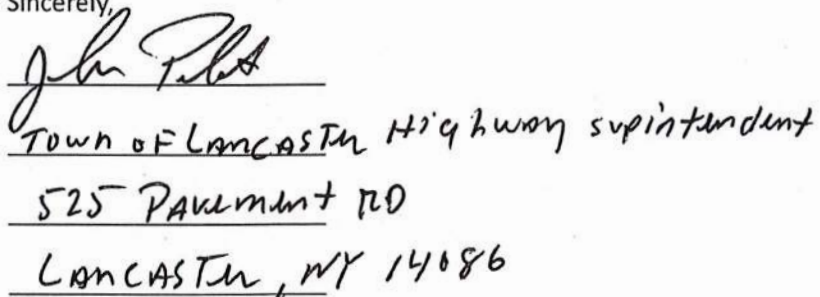 Sincerely,
John Pilat
Town of Lancaster Highway supintendent
525 Pavement RD
Lancaster, NY 14086